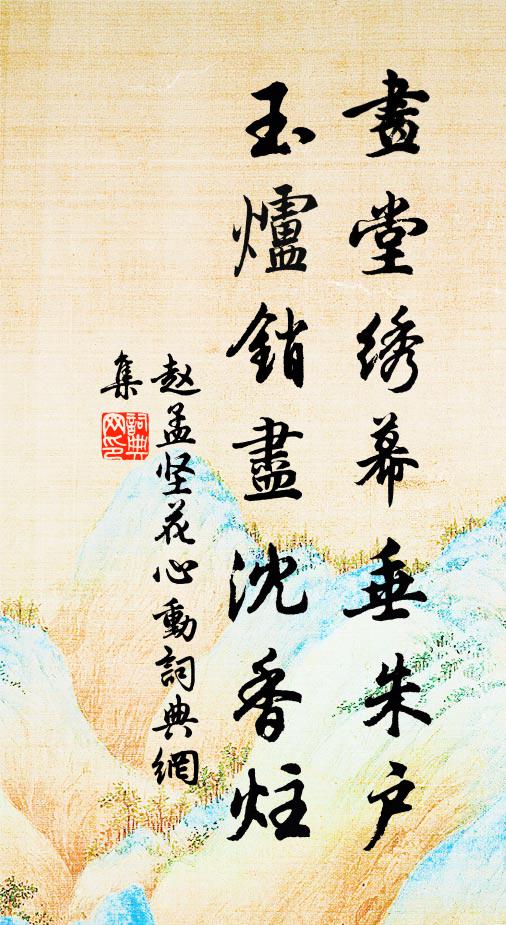 畫堂绣幕垂朱户
玉爐銷盡沈香炷
赵孟坚花心動詞典網
集
詞典网印